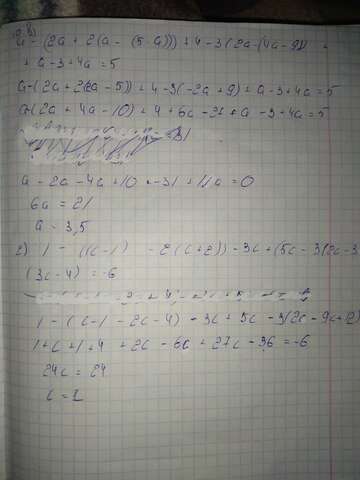 a - (2a + 2(a - (5-a))) + 4 - 3(2a-(4a-9)) +
+ a-3+4a=5
a-(2a+2(2a-5))+4-3(-2a+9)+a-3+4a=5
a-(2a+4a-10)+4+6a-31+a-3+4a=5
a-2a-4a+10-31+11a=0
6a=21
a=3,5
1-((c-1)-2(c+2))-3c+(5c-3(2c-3
(3c-4)=-6
1-(c-1-2c-4)-3c+5c-3(2c-9c+12)
1+c+1+4+2c-6c+27c-36=-6
24c=24
c=1